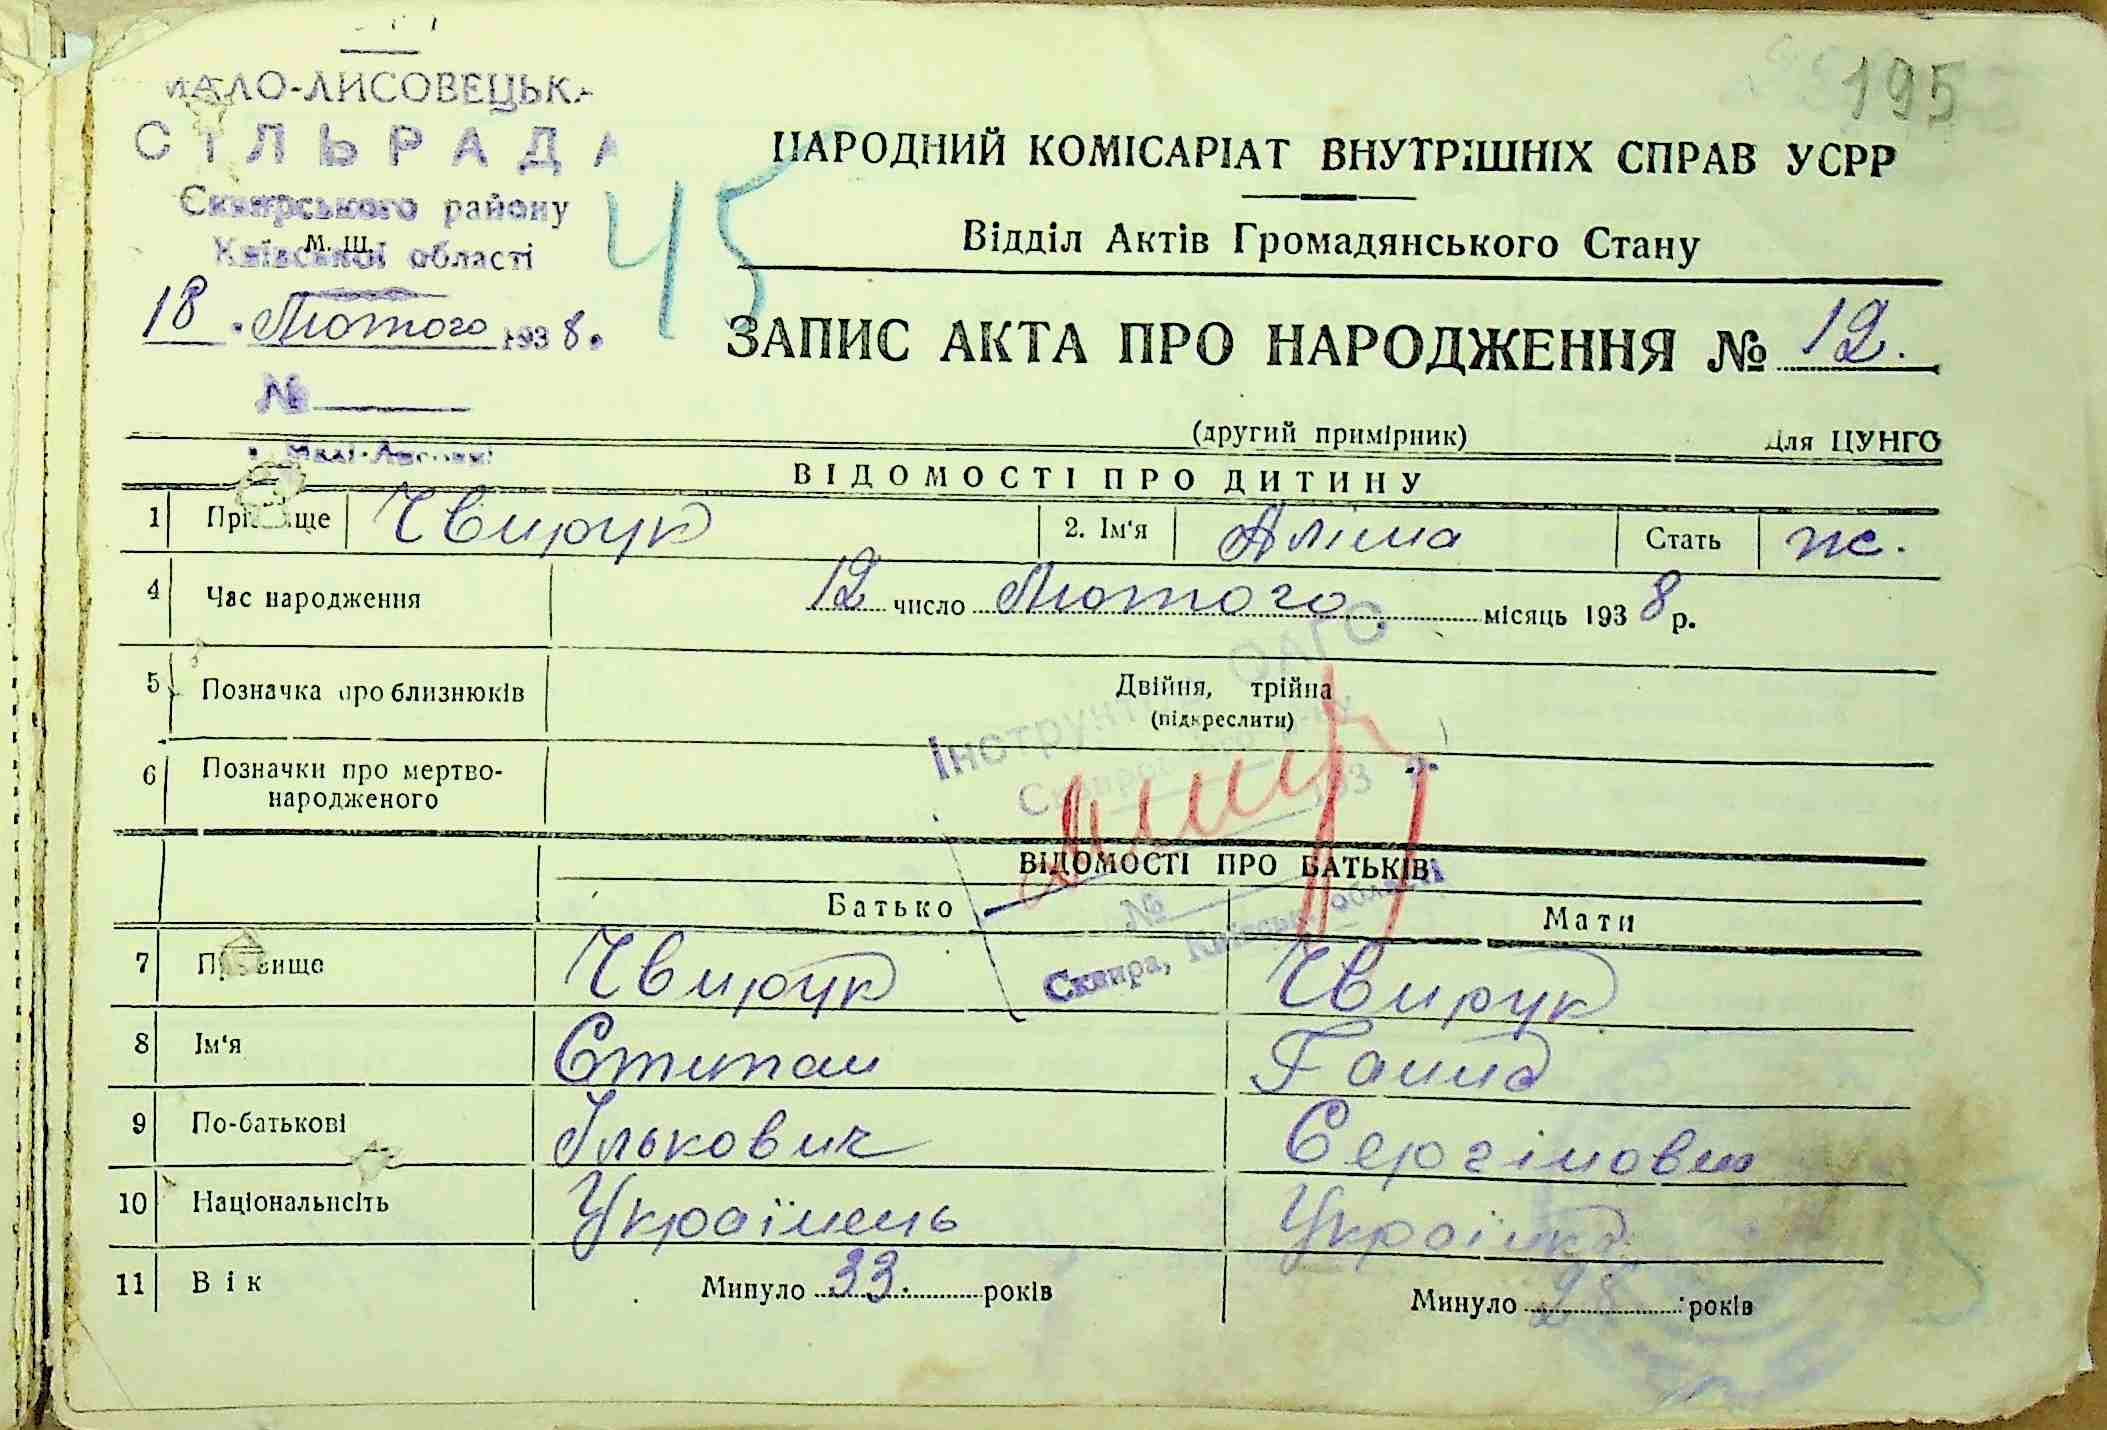 МАЛО-ЛИСОВЕЦЬКА
СІЛЬРАДА
Сквирського району
М. Ш.
Київської області
18 . Лютого 1938.
№
45
195
НАРОДНИЙ КОМІСАРІАТ ВНУТРІШНІХ СПРАВ УСРР
Відділ Актів Громадянського Стану
ЗАПИС АКТА ПРО НАРОДЖЕННЯ № 12.
(другий примірник) Для ЦУНГО
ВІДОМОСТІ ПРО ДИТИНУ
1 Прізвище Чвирук 2. Ім'я Аліна Стать ж.
4 Час народження 12 число Лютого місяць 1938 р.
5 Позначка про близнюків Двійня, трійна
(підкреслити)
6 Позначки про мертво-
народженого
Інструктор ОАГО
193 р.
ВІДОМОСТІ ПРО БАТЬКІВ
Батько Мати
№
Сквира, Київськ. області
7 Прізвище Чвирук Чвирук
8 Ім'я Степан Ганна
9 По-батьковіІлькович Сергіновна
10 Національність Українець Українка
11 Вік Минуло 33. років Минуло 28 років